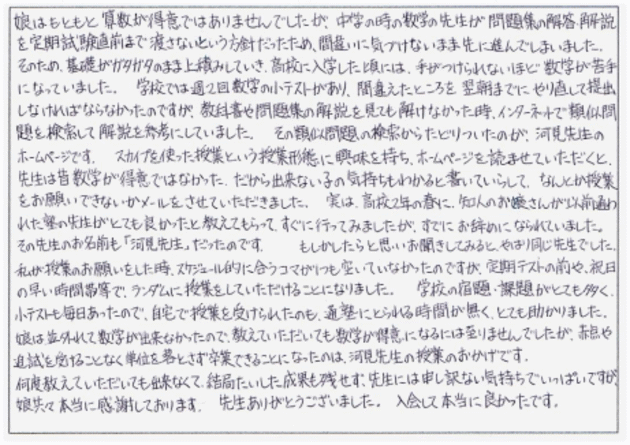 娘はもともと算数が得意ではありませんでしたが、中学の時の数学の先生が問題集の解答、解説
を定期試験直前まで渡さないという方針だったため、間違いに気づけないまま先に進んでしまいました。
そのため、基礎がガタガタのまま上積みしていき、高校に入学した頃には、手がつけられないほど数学が苦手
になっていました。 学校では週2回数学の小テストがあり、間違えたところを翌朝までにやり直して提出
しなければならなかったのですが、教科書や問題集の解説を見ても解けなかった時、インターネットで類似問
題を検索して解説を参考にしていました。 その類似問題の検索からたどりついたのが、河見先生の
ホームページです。 スカイプを使った授業という授業形態に興味を持ち、ホームページを読ませていただくと、
先生は昔数学が得意ではなかった、だから出来ない子の気持ちもわかると書いていらして、なんとか授業
をお願いできないかメールをさせていただきました。 実は、高校2年の春に、知人のお嬢さんが以前通わ
れた塾の先生がとても良かったと教えてもらって、すぐに行ってみましたが、すでにお辞めになられていました。
その先生のお名前も「河見先生」だったのです。 もしかしたらと思いお聞きしてみると、やはり同じ先生でした。
私が授業のお願いをした時、スケジュール的に合うコマが1つも空いていなかったのですが、定期テストの前や、祝日
の早い時間帯等で、ランダムに授業をしていただけることになりました。 学校の宿題・課題がとても多く、
小テストも毎日あったので、自宅で授業を受けられたのも、通塾にとられる時間が無く、とても助かりました。
娘は並外れて数学が出来なかったので、教えていただいても数学が得意になるには至りませんでしたが、赤点や
追試を受けることなく単位を落とさず卒業できることになったのは、河見先生の授業のおかげです。
何度教えていただいても出来なくて、結局たいした成果も残せず、先生には申し訳ない気持ちでいっぱいですが、
娘共々本当に感謝しております。 先生ありがとうございました。 入会して本当に良かったです。